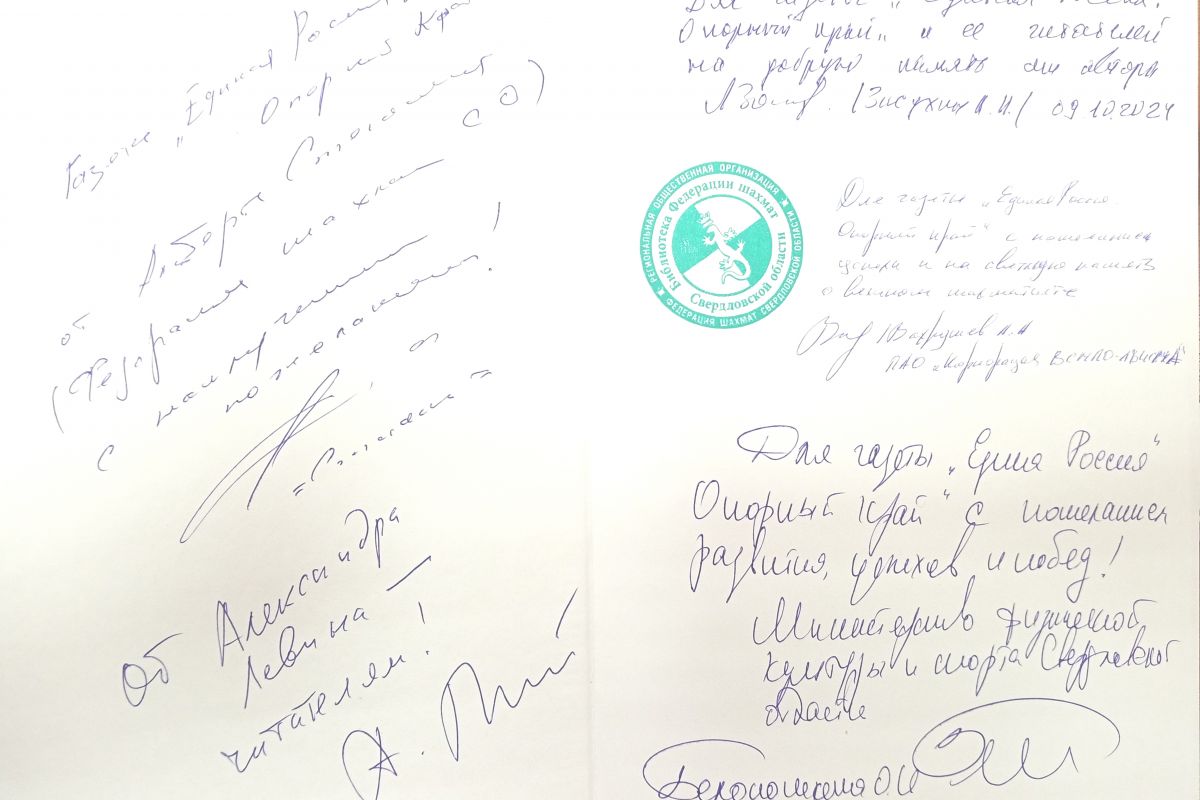 Газете „Единая Россия
Опорный Край
от
(Федерация шахмат СО)
с наилучшими
пожеланиями!
от
От Александра
Левина —
читателям!
Опорный край" и её читателей
на добрую память от автора
09.10.2024
РЕГИОНАЛЬНАЯ ОБЩЕСТВЕННАЯ ОРГАНИЗАЦИЯ
Библиотека Федерации шахмат
Свердловской области
ФЕДЕРАЦИЯ ШАХМАТ СВЕРДЛОВСКОЙ ОБЛАСТИ
Для газеты „Единая Россия.
Опорный край" с пожеланием
успеха и на светлую память
о
ПАО „Корпорация ВСМПО-АВИСМА"
Для газеты „Единая Россия"
Опорный край" с пожеланием
развития, успехов и побед!
Министерство физической
культуры и спорта Свердловской
области